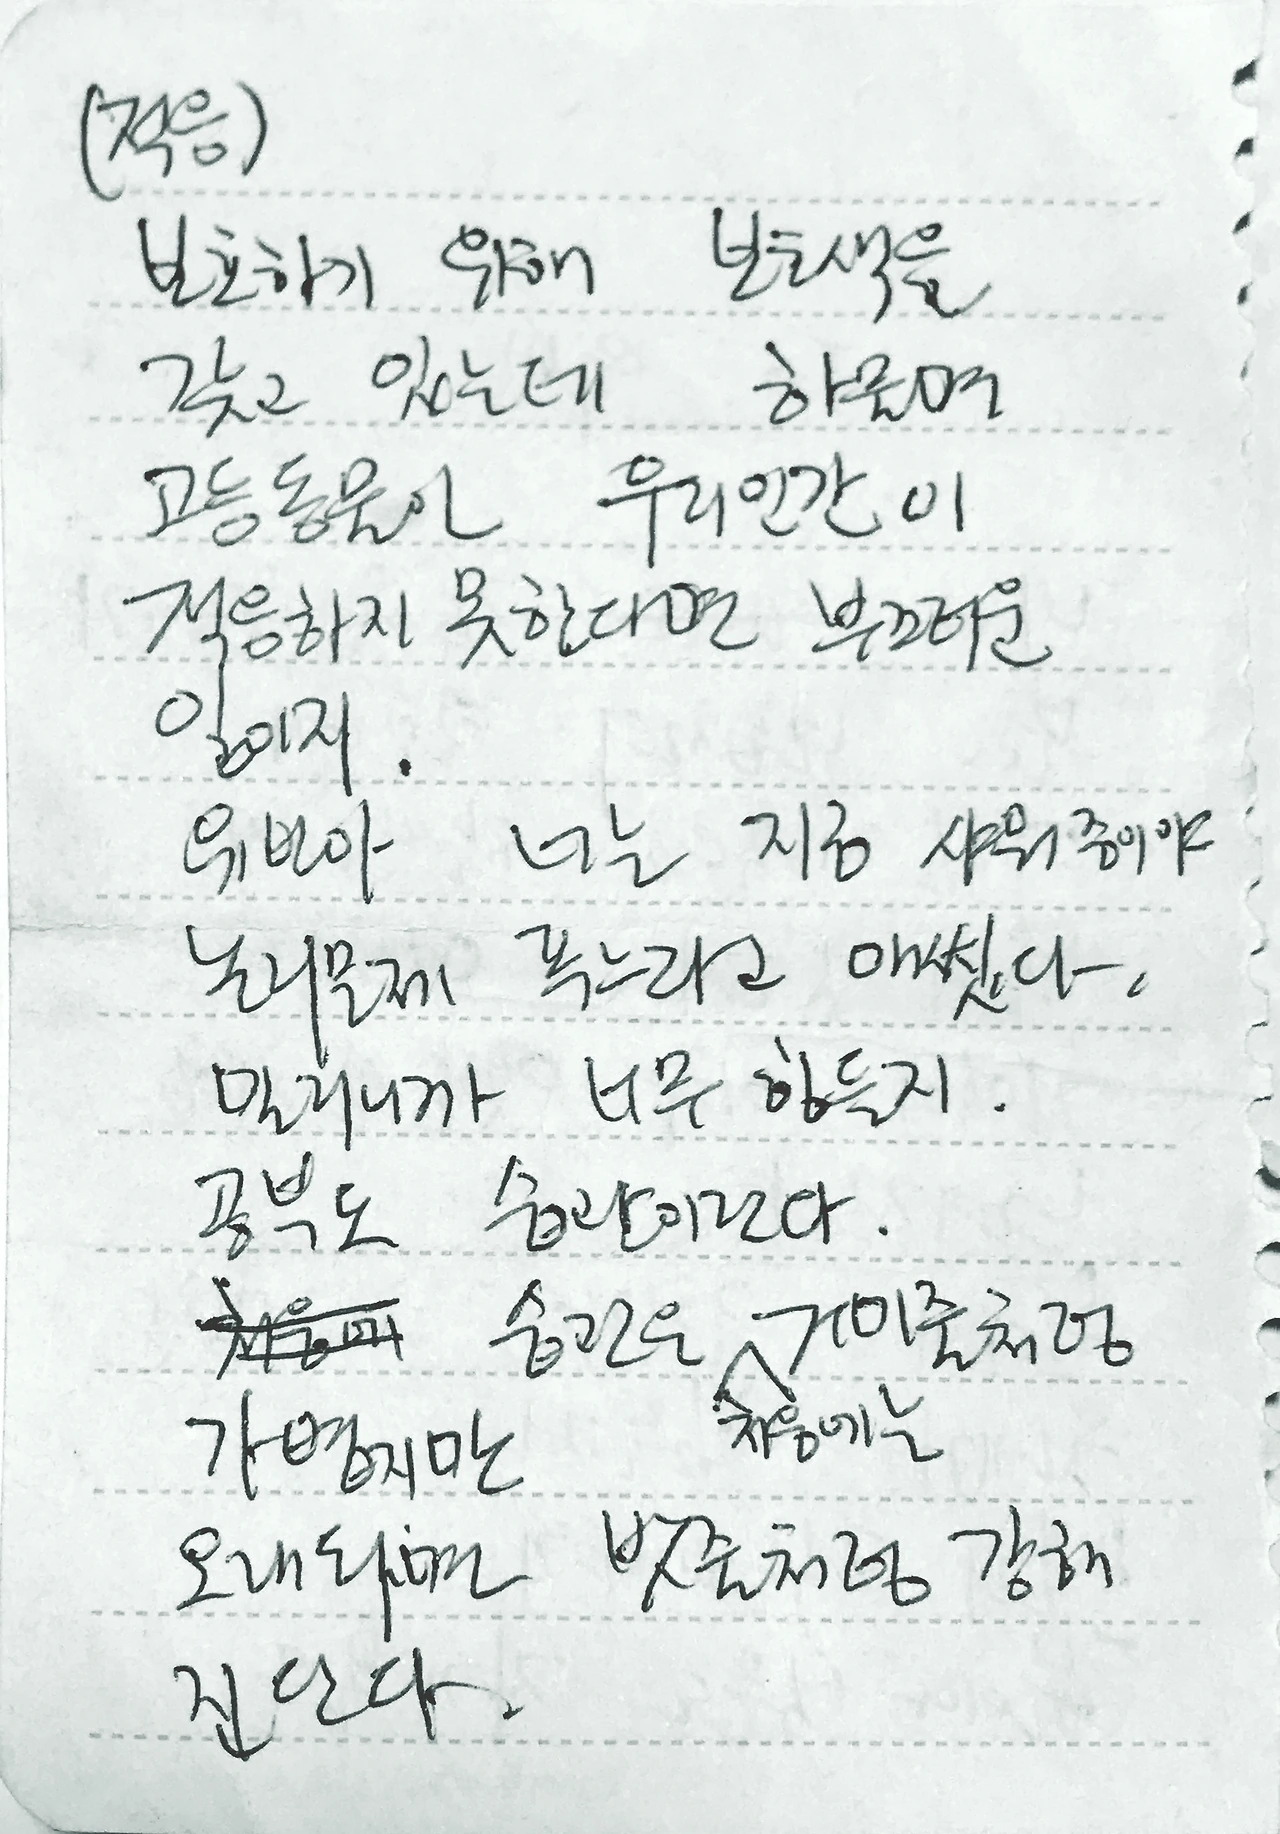 (적응)
보호하기 위해 보호색을
갖고 있는데 하물며
고등동물인 우리인간이
적응하지 못한다면 부끄러운
일이지.
유빈아 너는 지금 샤워중이야
논리문제 푸느라고 애썼다.
밀리니까 너무 힘들지.
공부도 습관이란다.
습관은 거미줄처럼
가볍지만 처음에는
오래되면 밧줄처럼 강해
진단다.